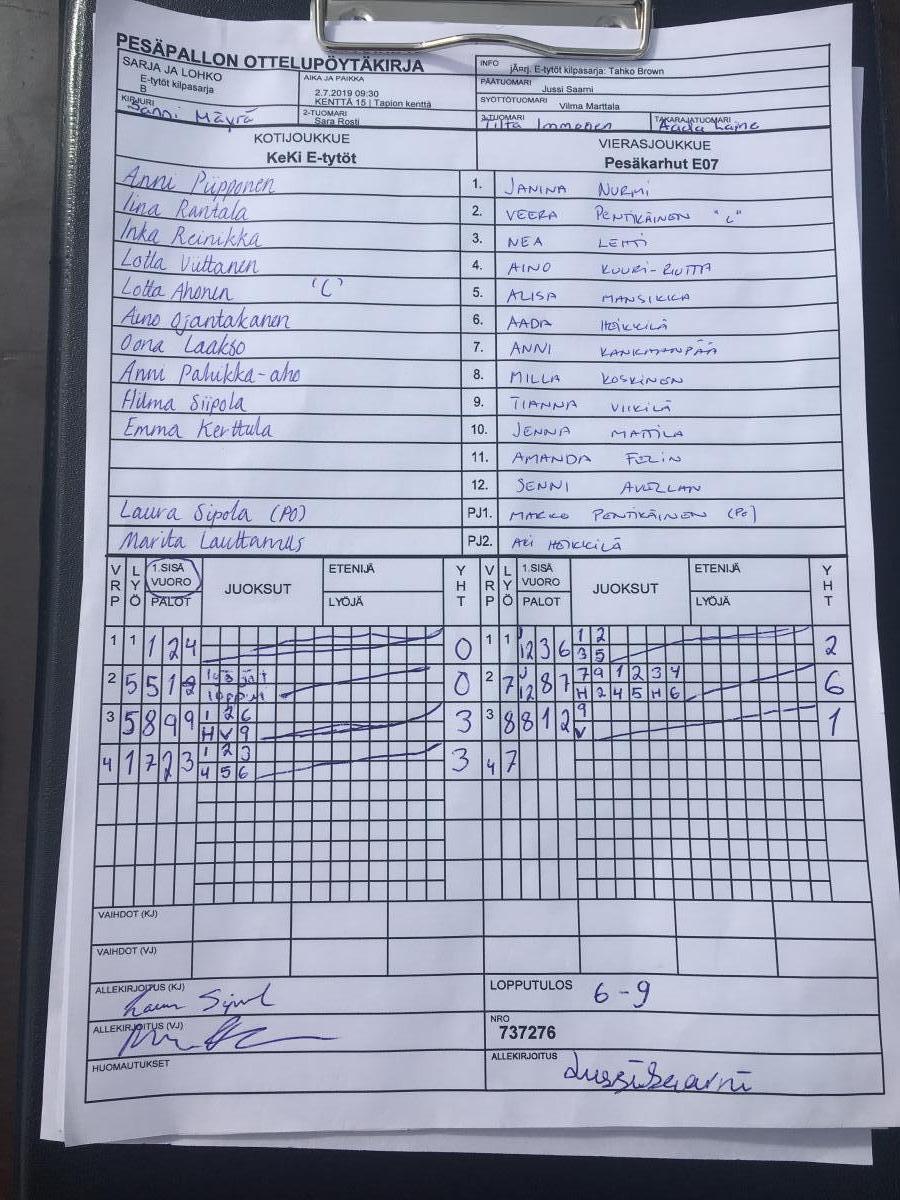 PESÄPALLON OTTELUPÖYTÄKIRJA
SARJA JA LOHKO
E-tytöt kilpasarja
B
AIKA JA PAIKKA
2.7.2019 09:30
KENTTÄ 15 | Tapion kenttä
INFO jÃ¤rj. E-tytöt kilpasarja: Tahko Brown
PÄÄTUOMARI Jussi Saarni
SYÖTTÖTUOMARI Vilma Marttala
KIRJURI Sanni Mäyrä
2-TUOMARI Sara Rosti
3-TUOMARI Tilta Immonen
TAKARAJATUOMARI Aada Laine
KOTIJOUKKUE
KeKi E-tytöt
VIERASJOUKKUE
Pesäkarhut E07
Anni Piipponen 1. JANINA NURMI
Iina Rantala 2. VEERA PENTIKÄINEN "C"
Inka Reinikka 3. NEA LEHTI
Lotta Viittanen 4. AINO KUURI-RIUTTA
Lotta Ahonen "C" 5. ALISA MANSIKKA
Aino Ojantakanen 6. AADA HEIKKILÄ
Oona Laakso 7. ANNI KANKAANPÄÄ
Anni Pahikka-aho 8. MILLA KOSKINEN
Hilma Siipola 9. TIANNA VIIKILÄ
Emma Kerttula 10. JENNA MATTILA
11. AMANDA
12. SENNI AVELLAN
Laura Sipola (PO) PJ1. MARKO PENTIKÄINEN (PO)
Marita Lauttamus PJ2. ARI HEIKKILÄ
VRP LYÖ 1.SISÄ VUORO PALOT JUOKSUT ETENIJÄ LYÖJÄ YHT VRP LYÖ 1.SISÄ VUORO PALOT JUOKSUT ETENIJÄ LYÖJÄ YHT
1 1 1 2 4 0 1 1 12 3 6 1 2 2
3 5
2 5 5 1 2 0 2 7 12 8 7 7 9 1 2 3 4 6
loppui H 2 4 5 H 6
3 5 8 9 9 1 2 6 3 3 8 8 1 2 9 1
H V 9 V
4 1 7 2 3 1 2 3 3 4 7
4 5 6
VAIHDOT (KJ)
VAIHDOT (VJ)
ALLEKIRJOITUS (KJ) Laura Sipola
LOPPUTULOS 6-9
ALLEKIRJOITUS (VJ)
NRO
737276
HUOMAUTUKSET
ALLEKIRJOITUS Jussi Saarni